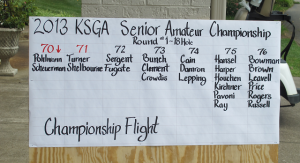 2013 KSGA Senior Amateur Championship
Round #1-18 Hole
70↓ 71 72 73 74 75 76
Pohlmann Turner Sargent Busch Cain Hansel Bowman
Scheuerman Shelbourne Fugate Clement Damron Harper Brown
Crowdus Lepping Houchen Leavell
Kirchner Price
Pavoni Rogers
Ray Russell
Championship Flight